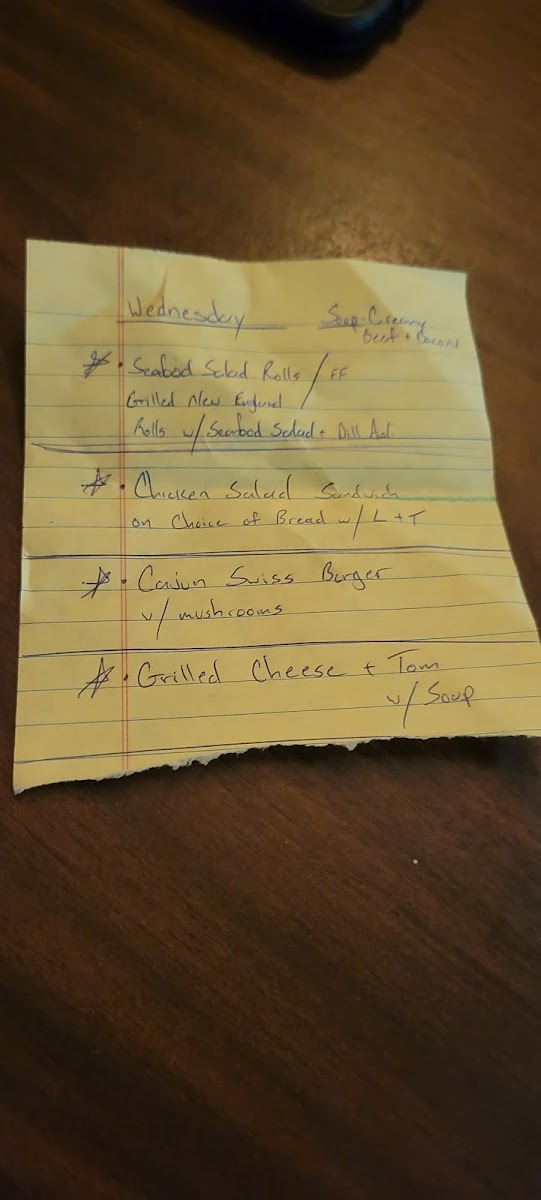 Wednesday
Soup-Creamy
Beef + Bacon
Seafood Salad Rolls / FF
Grilled New England
Rolls w/ Seafood Salad + Dill
Chicken Salad Sandwich
on Choice of Bread w/ L + T
Cajun Swiss Burger
w/ mushrooms
Grilled Cheese + Tom
w/ Soup